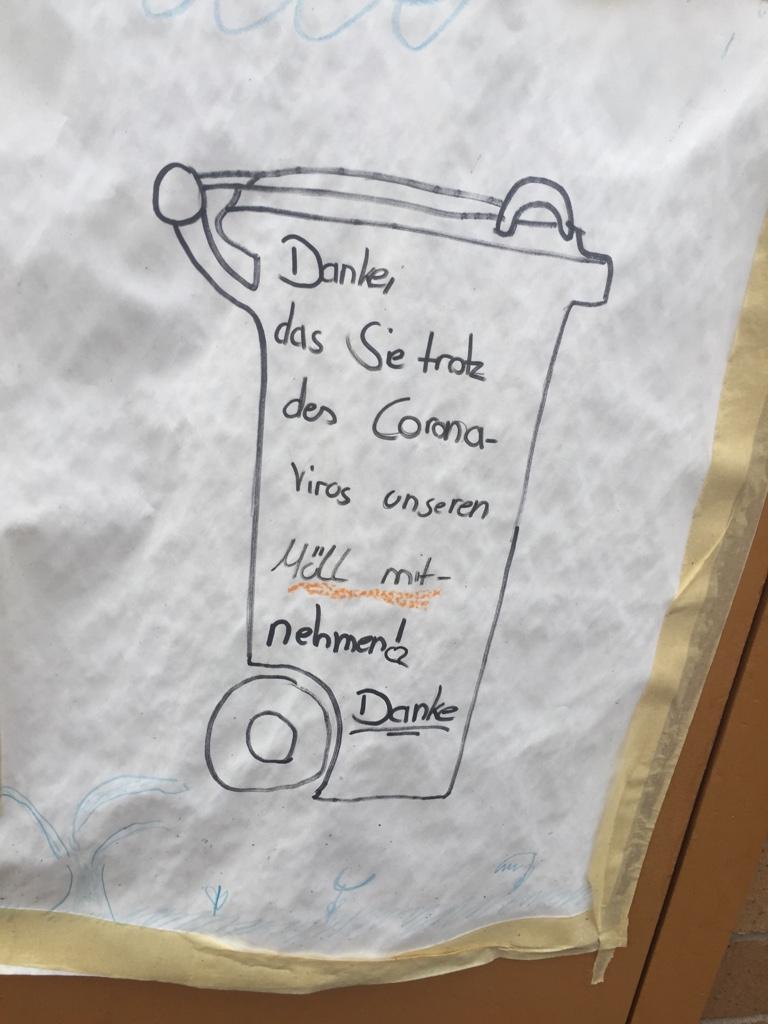 Danke,
das Sie trotz
des Corona-
Virus unseren
Müll mit-
nehmen!
Danke